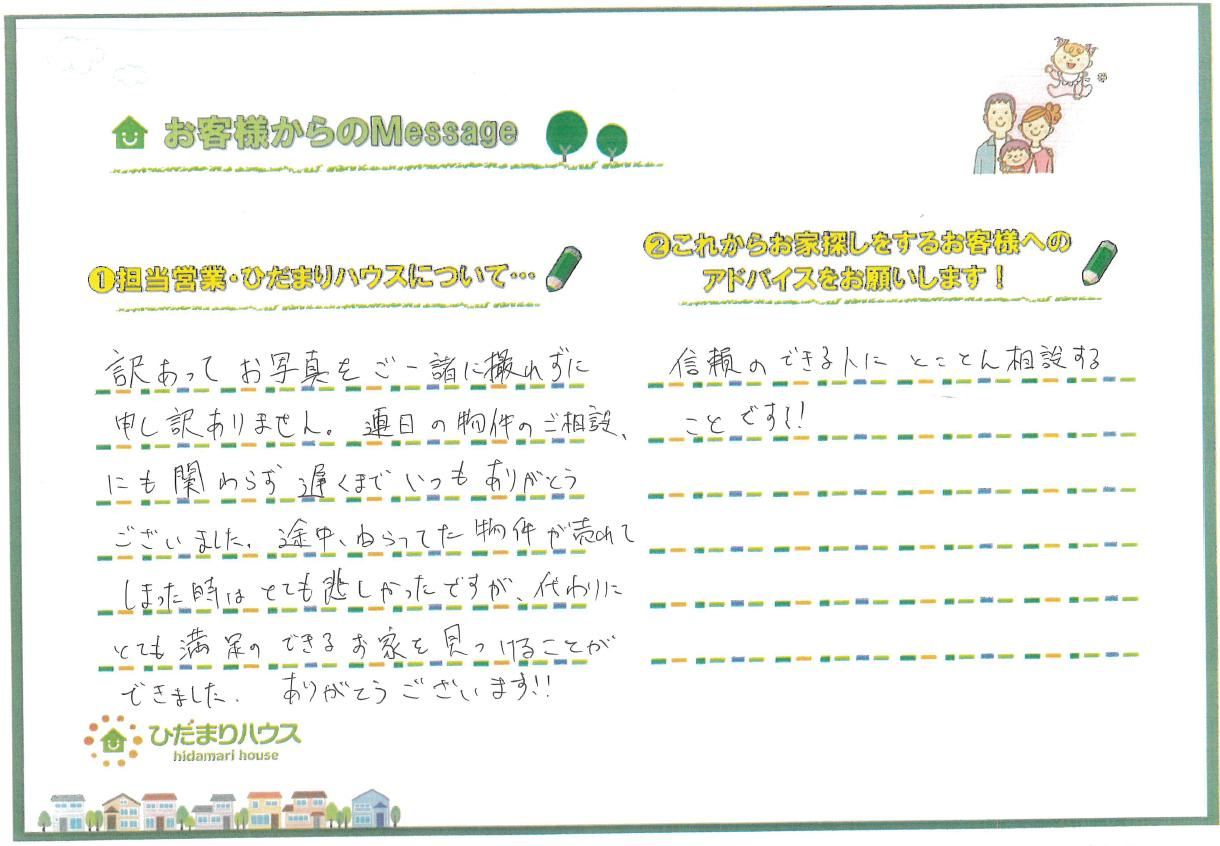 お客様からのMessage
❶担当営業・ひだまりハウスについて…
訳あって お写真を ご一諸に撮れずに
申し訳ありません。連日の物件のご相談、
にも関わらず 遅くまで いつも ありがとう
ございました。途中、ねらってた物件が売れて
しまった時は とても悲しかったですが、代わりに
とても満足の できる お家を 見つけることが
できました。 ありがとうございます!!
❷これからお家探しをするお客様への
アドバイスをお願いします！
信頼の できる人に とことん相談する
ことです!!
ひだまりハウス
hidamari house